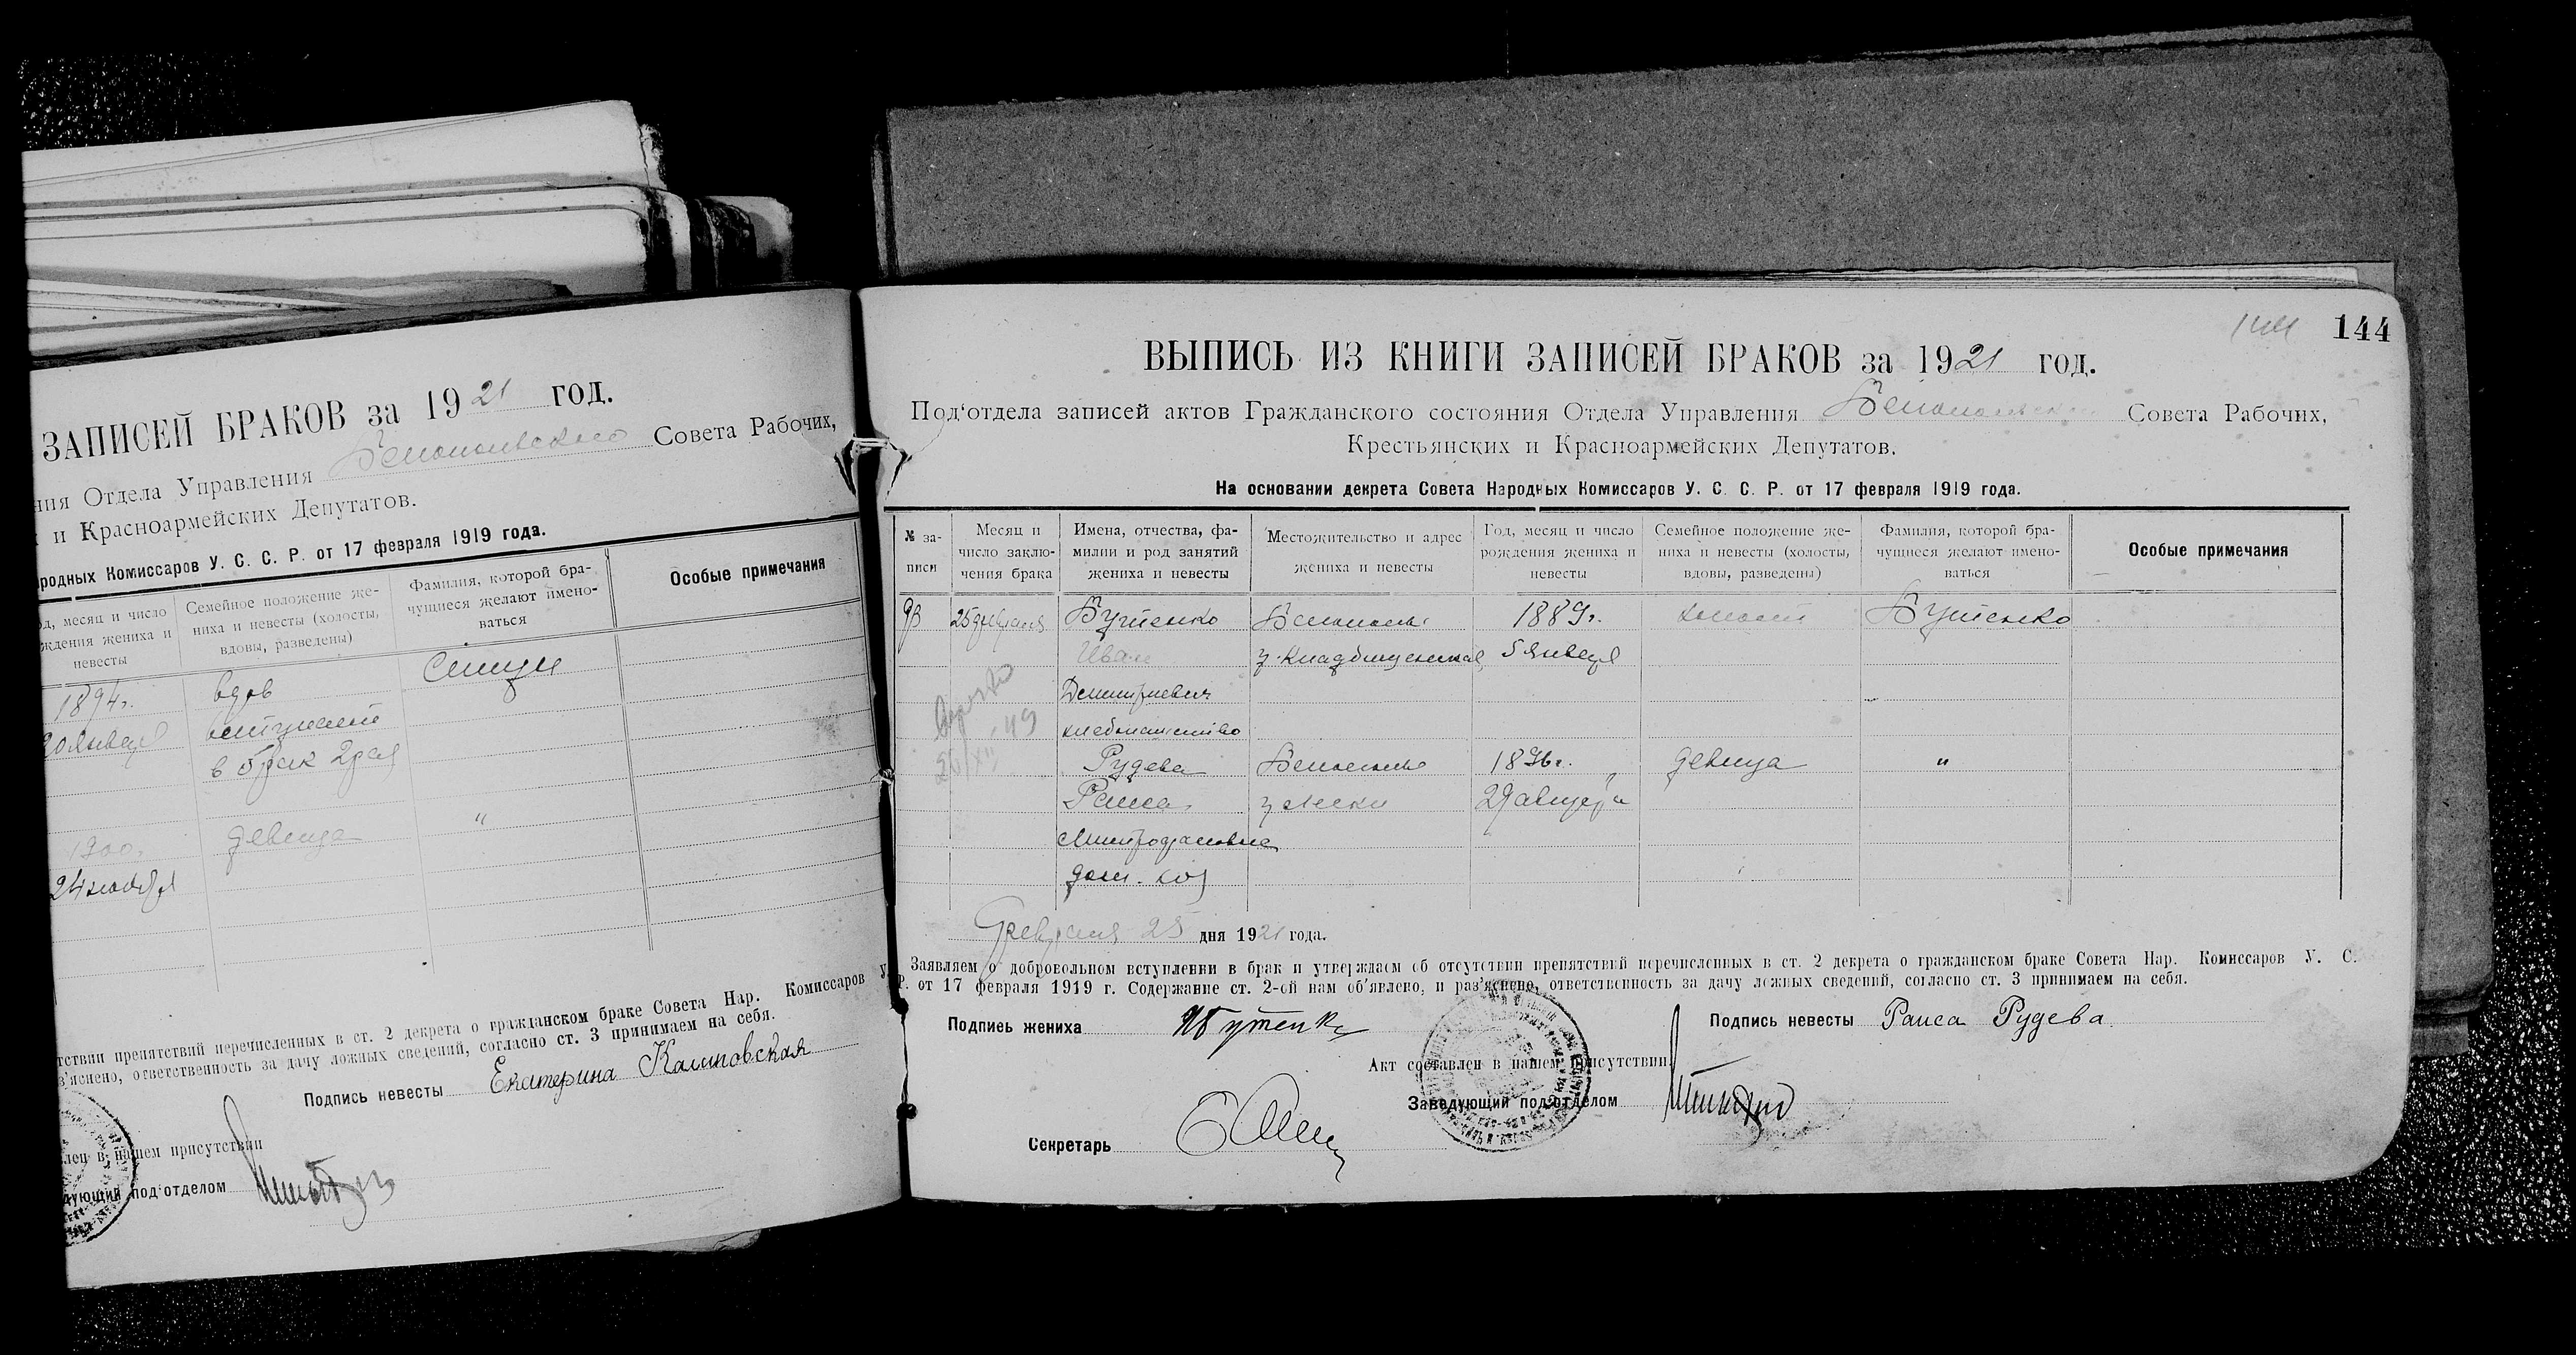 ЗАПИСЕЙ БРАКОВ за 1921 год.
ния Отдела Управления Белопольского Совета Рабочих,
и Красноармейских Депутатов.
ародных Комиссаров У. С. С. Р. от 17 февраля 1919 года.
од, месяц и число
ждения жениха и
невесты
Семейное положение же-
ниха и невесты (холосты,
вдовы, разведены)
Фамилия, которой бра-
чущиеся желают имено-
ваться
Особые примечания
1894г.
вдов
20 января
вступает
в брак 2 раз
"
1900г.
девица
24 ноября
тствии препятствий перечисленных в ст. 2 декрета о гражданском браке Совета Нар. Комиссаров У.
з'яснено, ответственность за дачу ложных сведений, согласно ст. 3 принимаем на себя.
Подпись невесты Екатерина Калиновская
лен в нашем присутствии
дующий под'отделом
144 144
ВЫПИСЬ ИЗ КНИГИ ЗАПИСЕЙ БРАКОВ за 1921 год.
Под'отдела записей актов Гражданского состояния Отдела Управления Белопольского Совета Рабочих,
Крестьянских и Красноармейских Депутатов.
На основании декрета Совета Народных Комиссаров У. С. С. Р. от 17 февраля 1919 года.
№ за-
писи
Месяц и
число заклю-
чения брака
Имена, отчества, фа-
милии и род занятий
жениха и невесты
Местожительство и адрес
жениха и невесты
Год, месяц и число
рождения жениха и
невесты
Семейное положение же-
ниха и невесты (холосты,
вдовы, разведены)
Фамилия, которой бра-
чущиеся желают имено-
ваться
Особые примечания
25 февраля Бутенко Белополье 1889г. холост Бутенко
Иван у. Кладбищенская 5 января
Димитриевич
хлебопашество
Рудева Белополье 1896г. девица "
Раиса 29 августа
Митрофановна
дом. хоз
26/XII 49
Февраля 25 дня 1921 года.
Заявляем о добровольном вступлении в брак и утверждаем об отсутствии препятствий перечисленных в ст. 2 декрета о гражданском браке Совета Нар. Комиссаров У. С.
Р. от 17 февраля 1919 г. Содержание ст. 2-ой нам об'явлено, и раз'яснено, ответственность за дачу ложных сведений, согласно ст. 3 принимаем на себя.
Подпись жениха ИБутенко
Подпись невесты Раиса Рудева
Акт составлен в нашем присутствии
Заведующий под'отделом
Секретарь